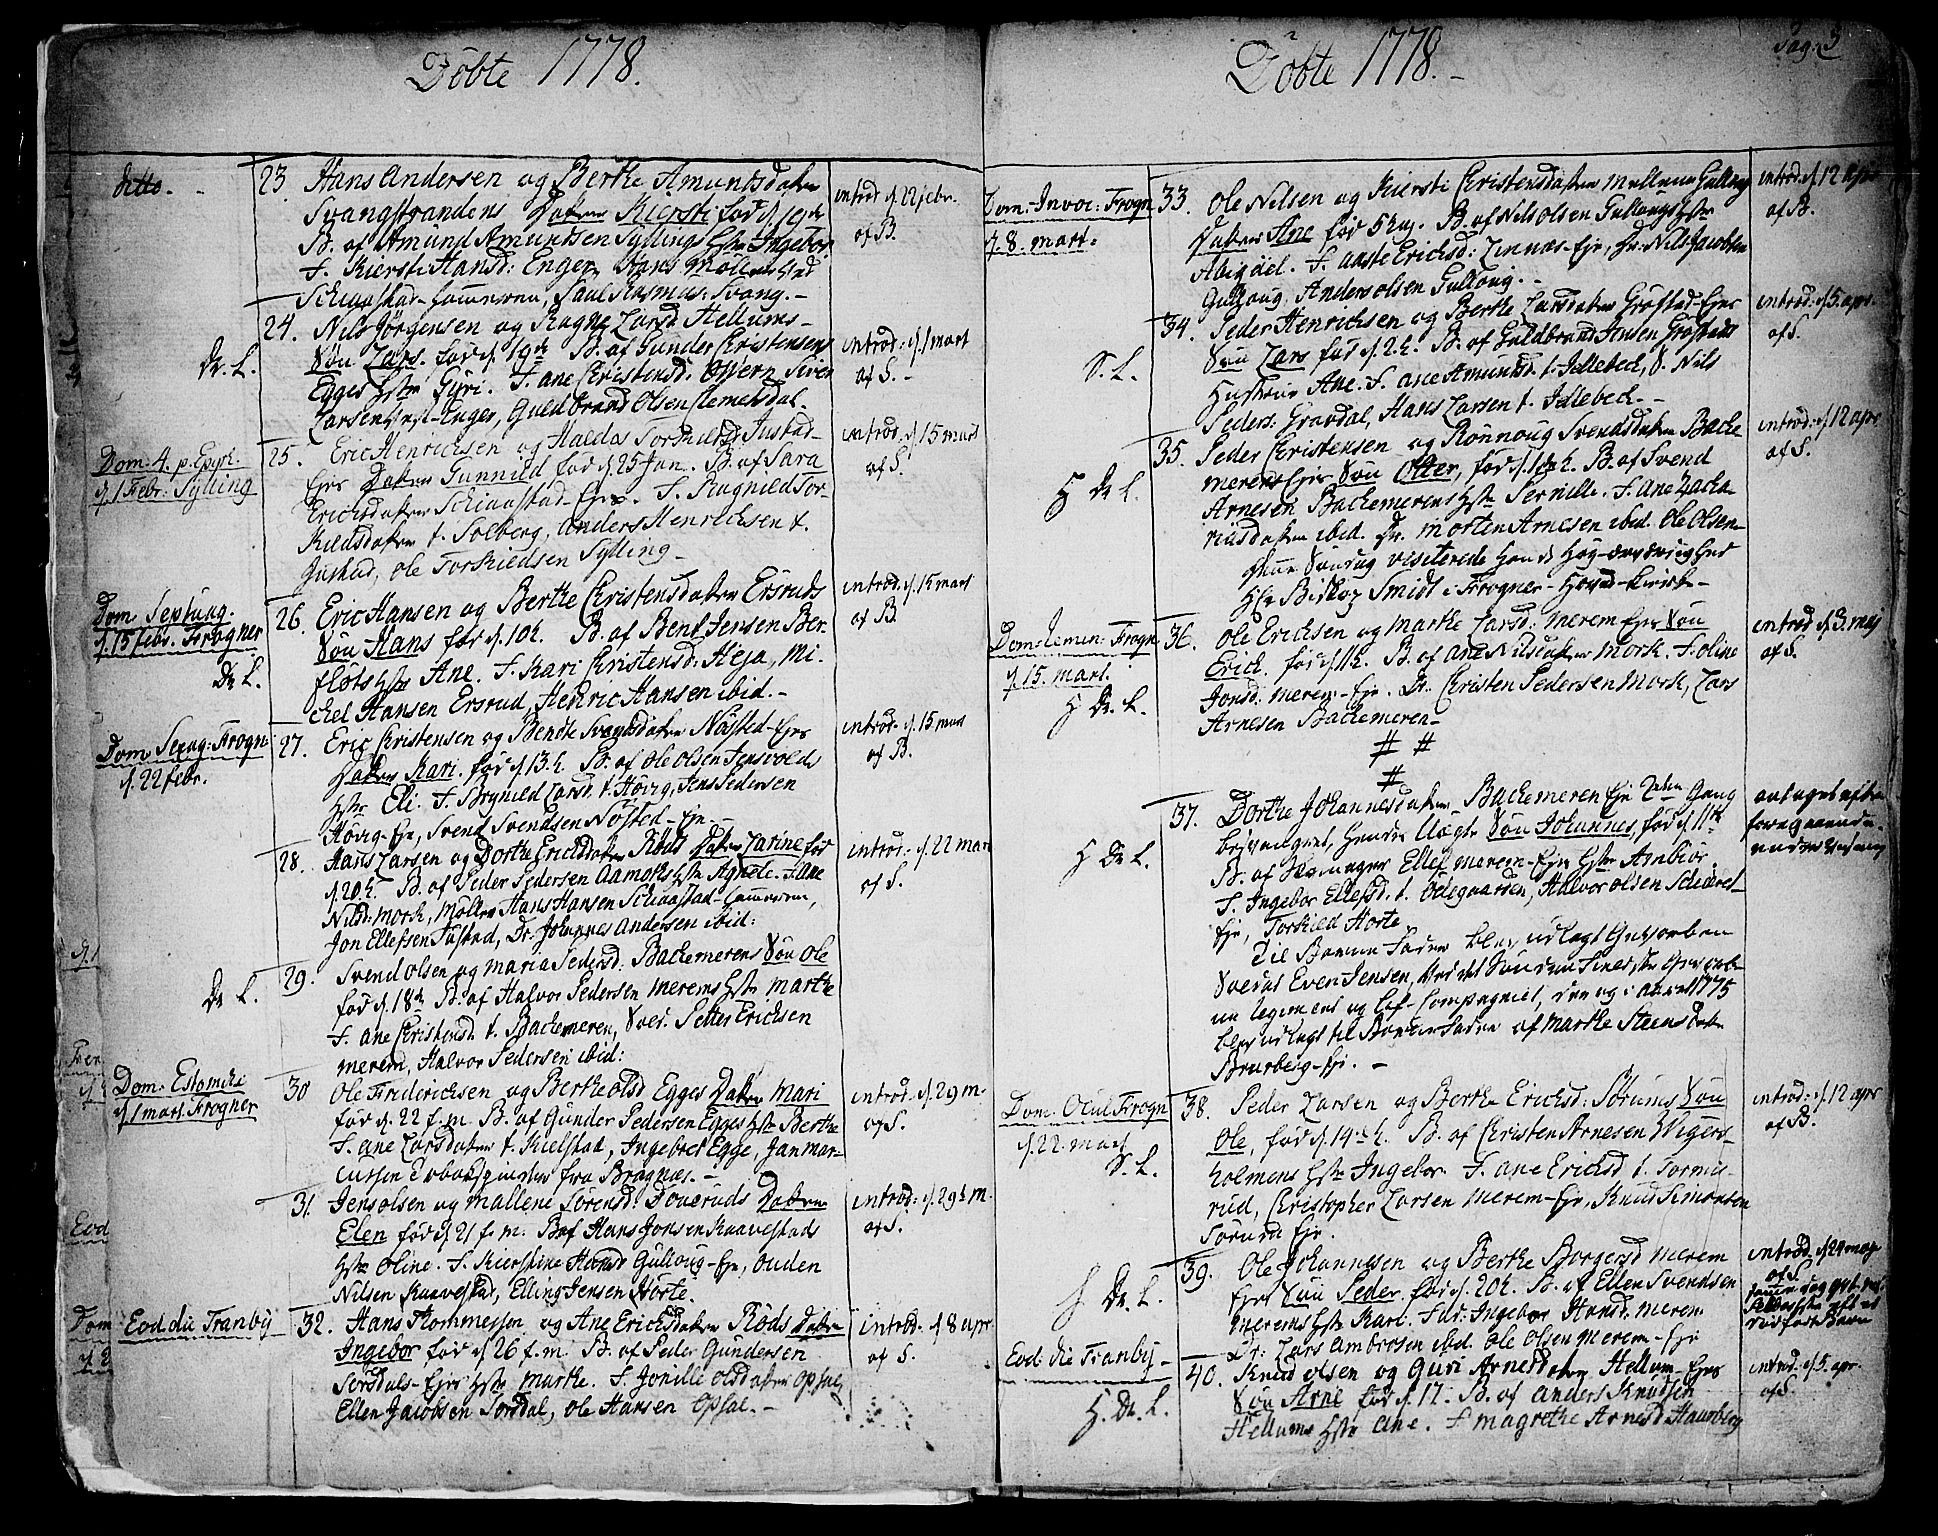 Döbte 1778.
ditto. -
23 Hans Andersen og Berthe Amundsdater
Svangstrandens Dater Kiersti fød d. 19de
B. af Amund Amundsen Syllings Hstr Ingebor
F. Kiersti Hansd: Enger, Hans Möller
Schiaastad-Cammeren, Paul Rasmus: Svang. -
introd d. 22 febr.
af B.
Dr. L.
24. Nils Jörgensen og Ragne Larsd Hellums-
Sön Lars. fød d. 19de B. af Gunder Christensens
Egges Hstr Gyri. F. Ane Christensd. Opsern Siver
Larsen Enger, Guldbrand Olsen Clemetsdal.
introd: d. 1 mart
af S. -
Dom. 4. p. Epyh.
d. 1 Febr: Sylling
25. Eric Henrichsen og Haldas Torkildsd Justad-
Ejes Dater Gunnild fød d. 25 Jan. B. af Sara
Erichsdater Schiaastad-Eje. F. Ragnild Tor-
kieldsdater t. Solberg, Anders Henrichsen t.
Justad, Ole Torkieldsen Sylling -
introd: d. 15 mart
af S.
Dom Septuag.
d. 15 febr. Frogner
Dr L.
26. Eric Hansen og Berthe Christensdater Ersruds
Sön Hans fød d. 10 h. B. af Bent Jensen Ber-
fløts Hstr Ane. F. Kari Christensd: Heja, Mi-
chel Hansen Ersrud, Henric Hansen ibid. -
introd: d. 15 mart
af B.
Dom Sexag. Frogn
d. 22 febr.
27. Eric Christensen og Bendte Svendsdater Nøsted-Ejes
Dater Kari. fød d. 13. h. B. af Ole Olsen Jensvolds
Hstr Eli. F. Brynild Larsd. t. Høvig, Jens Pedersen
Høvig-Eje, Svend Svendsen Nøsted-Eje. -
introd. d. 15 mart
af B.
28. Hans Larsen og Dorthe Erichsdater Röds Dater Larine fød
d. 20 h. B. af Peder Pedersen Aamoths Hstr Agnete. F. Ane
Nilsd: Mork, Möller Hans Hansen Schiaastad-Cammeren,
Jon Ellefsen Justad, Dr. Johannes Andersen ibid:
introd: d. 22 mart
af S.
Dr L.
29. Svend Olsen og Maria Pedersd: Bachemerens Sön Ole
fød d. 18de B. af Halvor Pedersen Merems Hstr Marthe
F. Ane Christensd t. Bachemeren, Sved. Petter Ericksen
Merem, Halvor Pedersen ibid:
Dom. Estomihi
d. 1 mart. Frogner
30 Ole Friderichsen og Berthe Olsd Egges Dater Mari
fød d. 22 f. m. B. af Günder Pedersen Egges Hstr Berthe
F. Ane Larsdater t. Kielstad, Ingebret Egge, Jan Mar-
cussen fra Bragnæs. -
introd: d. 29 m.
af S.
31. Jens Olsen og Mallene Sörensd: Toveruds Dater
Elen fød d. 21 f. m. B. af Hans Jonsen Kaavestads
Hstr Oline. F. Kierstine Hansd Gulloug-Eje, Ouden
Nilsen Kaavestad, Elling Jensen Horte.
introd: d. 29de m.
af S.
Eod die Tranby
32. Hans Tommessen og Ane Ericksdater Röds Dater
Ingebor fød d. 26 f. m. B. af Peder Gündersen
Sørsdals-Ejes Hstr Marthe. F. Jonille Olsdater Opsal,
Ellen Jacobsen Sørsdal, Ole Hansen Opsal. -
introd. d. 8 apr
af S.
Döbte 1778. -
Pag. 3
Dom. Invoc: Frogn
d. 8. mart.
33. Ole Nilsen og Kiersti Christensdater Mellem Gulloug
Dater Ane fød 5 huj. B. af Nils Olsen Gullougs Hstr
Abigael. F. Aaste Ericksd: Linnæs-Eje, Dr. Nils Jacobsen
Gulloug, Anders Olsen Gulloug. -
introd: d. 12 apr
af B.
S. L.
34. Peder Henrichsen og Berthe Larsdater Gröstad-Ejes
Sön Lars fød d. 2. h. B. af Guldbrand Jensen Gröstads
Hustrue Ane. F. Ane Amundsd t. Jellebech, S. Nils
Peders: Gravdal, Hans Larsen t. Jellebech. -
introd: d. 5. apr.
af S.
H Dr L.
35. Peder Christensen og Rönnoug Svendsdater Bache-
merens Ejes Sön Otter, fød d. 1de h. B. af Svend
Arnesen Bachemerens Hstr Pernille. F. Ane Zacha-
riasdater ibid. Dr. Morten Arnesen ibid. Ole Olsen
denne Søndag visiterede Hans Høy-ærværdighed
Hr Biskop Smidt i Frogner-Hoved-Kirke -
introd: d. 12 apr
af S.
Dom: Remin: Frogn
d. 15. mart.
H Dr. L.
36. Ole Ericksen og Marthe Larsd: Merem Ejes Sön
Erick. fød d. 11 h. B. af Ane Nilsdater Mork. F. Oline
Jonsd: Merem-Eje. Dr. Christen Pedersen Mork, Lars
Arnesen Bachemeren -
# #
#
introd d. 3. maj
af S.
H Dr L.
37. Dorthe Johannesdater Bachemeren Eje 2den Gang
besvangret, hendes Uægte Sön Johannes, fød d. 11te
B. af Skomager Ellef Merem-Ejes Hstr Arnbiør.
F. Ingebor Ellefsd. t. Odegaarden, Halvor Olsen Schiæret-
Eje, Torkild Horte
Til Barne Fader blev udlagt Geworben
Soldat Even Jensen, ved det Søndenfieldske
Regiment og Lif-Compagniet, som og i Anno 1775
blev udlagt til Barne-Fader af Marthe Steensdater
Bruberg-Eje. -
antaget efter
foregaaende
undervisning
Dom. Oculi Frogn
d. 22. mart
S. L.
38. Peder Larsen og Berthe Ericksd: Sörums Sön
Ole, fød d. 14de h. B. af Christen Arnesen Wigers-
holmens Hstr Ingebor F. Ane Ericksd t. Tormis-
rud, Christopher Larsen Merem-Eje, Knud Simonsen
Sörum Eje.
introd: d. 12 apr
af B.
H Dr. L.
39. Ole Johannesen og Berthe Borgersd Merem
Ejes Sön Peder. fød d. 20 h. B. af Ellen Svendsen
Merems Hstr Kari. Fadr: Ingebor Hansd: Merem
Dr: Lars Ambrosen ibid. Ole Olsen Merem-Eje
introd. d. 24 maj
af S.
Eod: die Tranby -
H. Dr. L.
40. Knud Olsen og Guri Arnesdater Hellum-Ejes
Sön Arne fød d. 17. B. af Anders Knudsen
Hellums Hstr Ane. F Magrethe Arnesd Haugberg
introd. d. 5. apr.
af S.